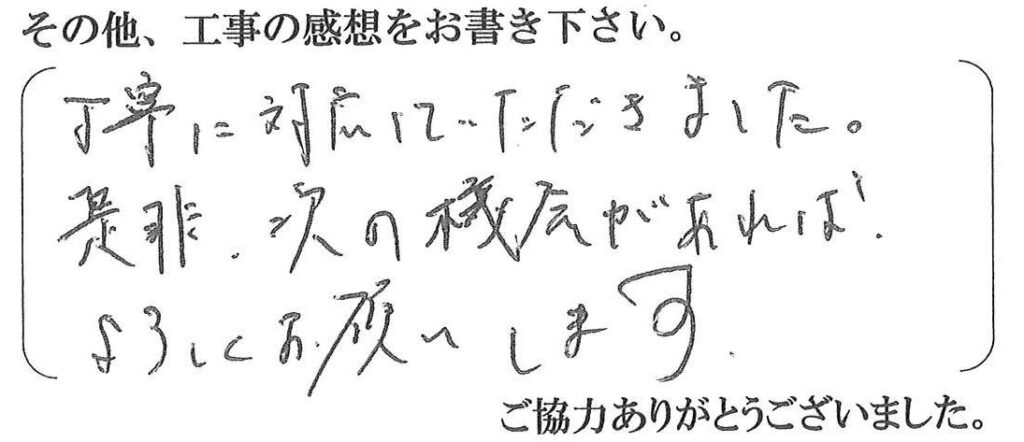 その他、工事の感想をお書き下さい。
丁寧に対応していただきました。
是非、次の機会があれば、
よろしくお願いします。
ご協力ありがとうございました。